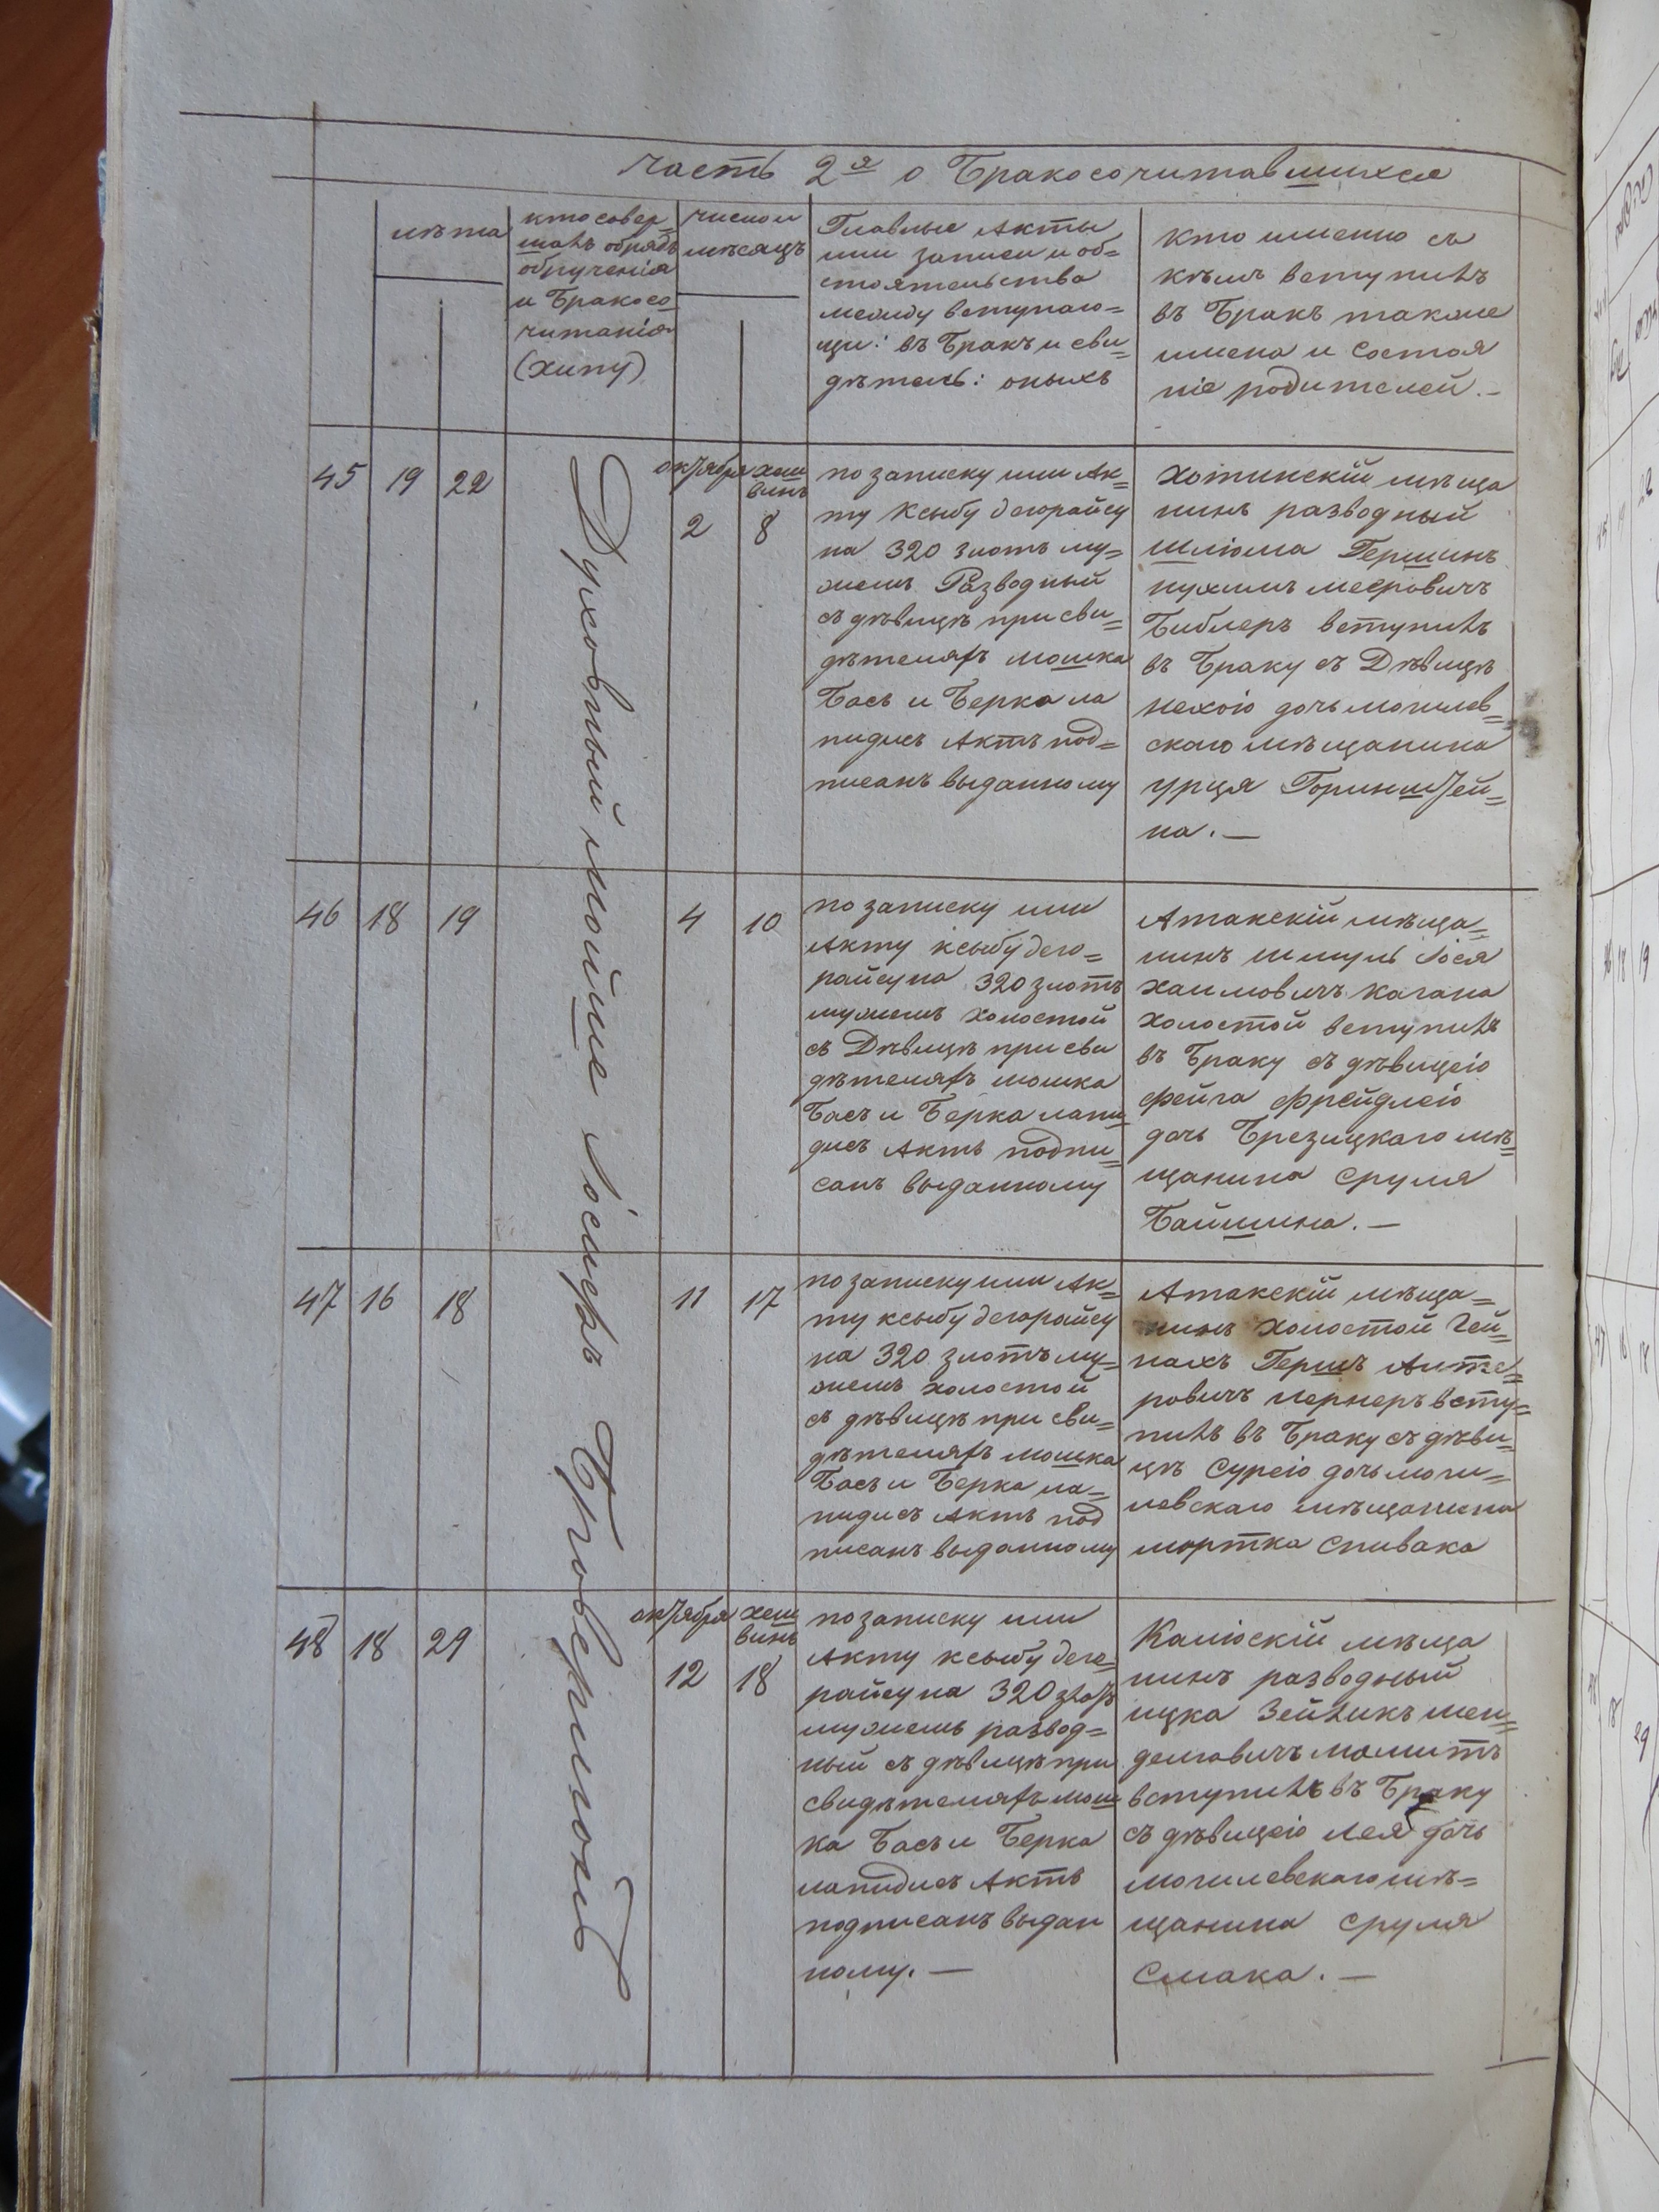 Часть 2я о Бракосочитавшихся
лѣта
кто совер
шалъ обрядъ
обрученія
и Бракосо
читанія
(хупу)
число и
мѣсяцъ
Главные Акты
или записи и об=
стоятельства
между вступаю=
щи: въ Бракъ и сви=
дѣтель: оныхъ
кто именно съ
кѣмъ вступилъ
въ Бракъ также
имена и Состоя
ніе родителей.—
Духовный мойше Іосифъ Бровериной
45
19
22
октября
2
хеш
винъ
8
по записку или Ак=
ту Ксыбу деорайсу
на 320 злотъ му=
жемъ Разводный
съ дѣвицѣ при сви=
дѣтеляхъ мошка
Басъ и Берка ла
пидисъ Актъ под=
писанъ выданному
хотинскій мѣща
нинъ разводный
шлюма Гершинъ
нухимъ мееровичъ
Библеръ вступилъ
въ Браку съ Дѣвицѣ
нехою дочь могилев=
скаго мѣщанина
урця Горинштей=
на.—
46
18
19
4
10
по записку или
Акту ксыбу дего=
райсу на 320 злотъ
мужемъ холостой
съ Дѣвицѣ при сви
дѣтеляхъ мошка
Басъ и Берка лапи
дисъ Актъ подпи=
санъ выданному
Атакскій мѣща=
нинъ шмуль Іося
хаимовичъ кагана
холостой вступилъ
въ Браку съ дѣвицею
фейга фрейдлею
дочь Брезицкаго мѣ=
щанина сруля
Байшина.—
47
16
18
11
17
по записку или Ак=
ту ксыбу деорайсу
на 320 злотъ му=
жемъ холостой
съ дѣвицѣ при сви=
дѣтеляхъ мошка
Басъ и Берка ла=
пидисъ Актъ под
писанъ выданному
Атакскій мѣща=
нинъ холостой Гей=
нахъ Гершъ Алте=
ровичъ лернеръ всту=
пилъ въ Браку съ дѣви=
цѣ Сурею дочь моги=
левскаго мѣщанина
мортка спивака
48
18
29
октября
12
хеш
винъ
18
по записку или
Акту ксыбу дего=
райсу на 320 злотъ
мужемъ развод=
ный съ дѣвицѣ при
свидѣтеляхъ мош
ка Басъ и Берка
лапидисъ Актъ
подписанъ выдан
ному.—
Калюскій мѣща
нинъ разводный
ицка Зейликъ мен=
делговичъ маламитъ
вступилъ въ Браку
съ дѣвицею лея дочь
могилевскаго мѣ=
щанина сруля
Смака.—